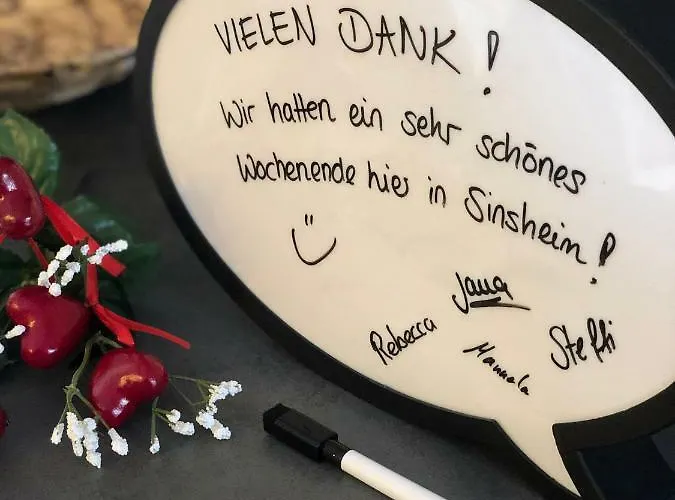 VIELEN DANK!
Wir hatten ein sehr schönes
Wochenende hier in Sinsheim!
Jana
Rebecca
Manuela
Steffi